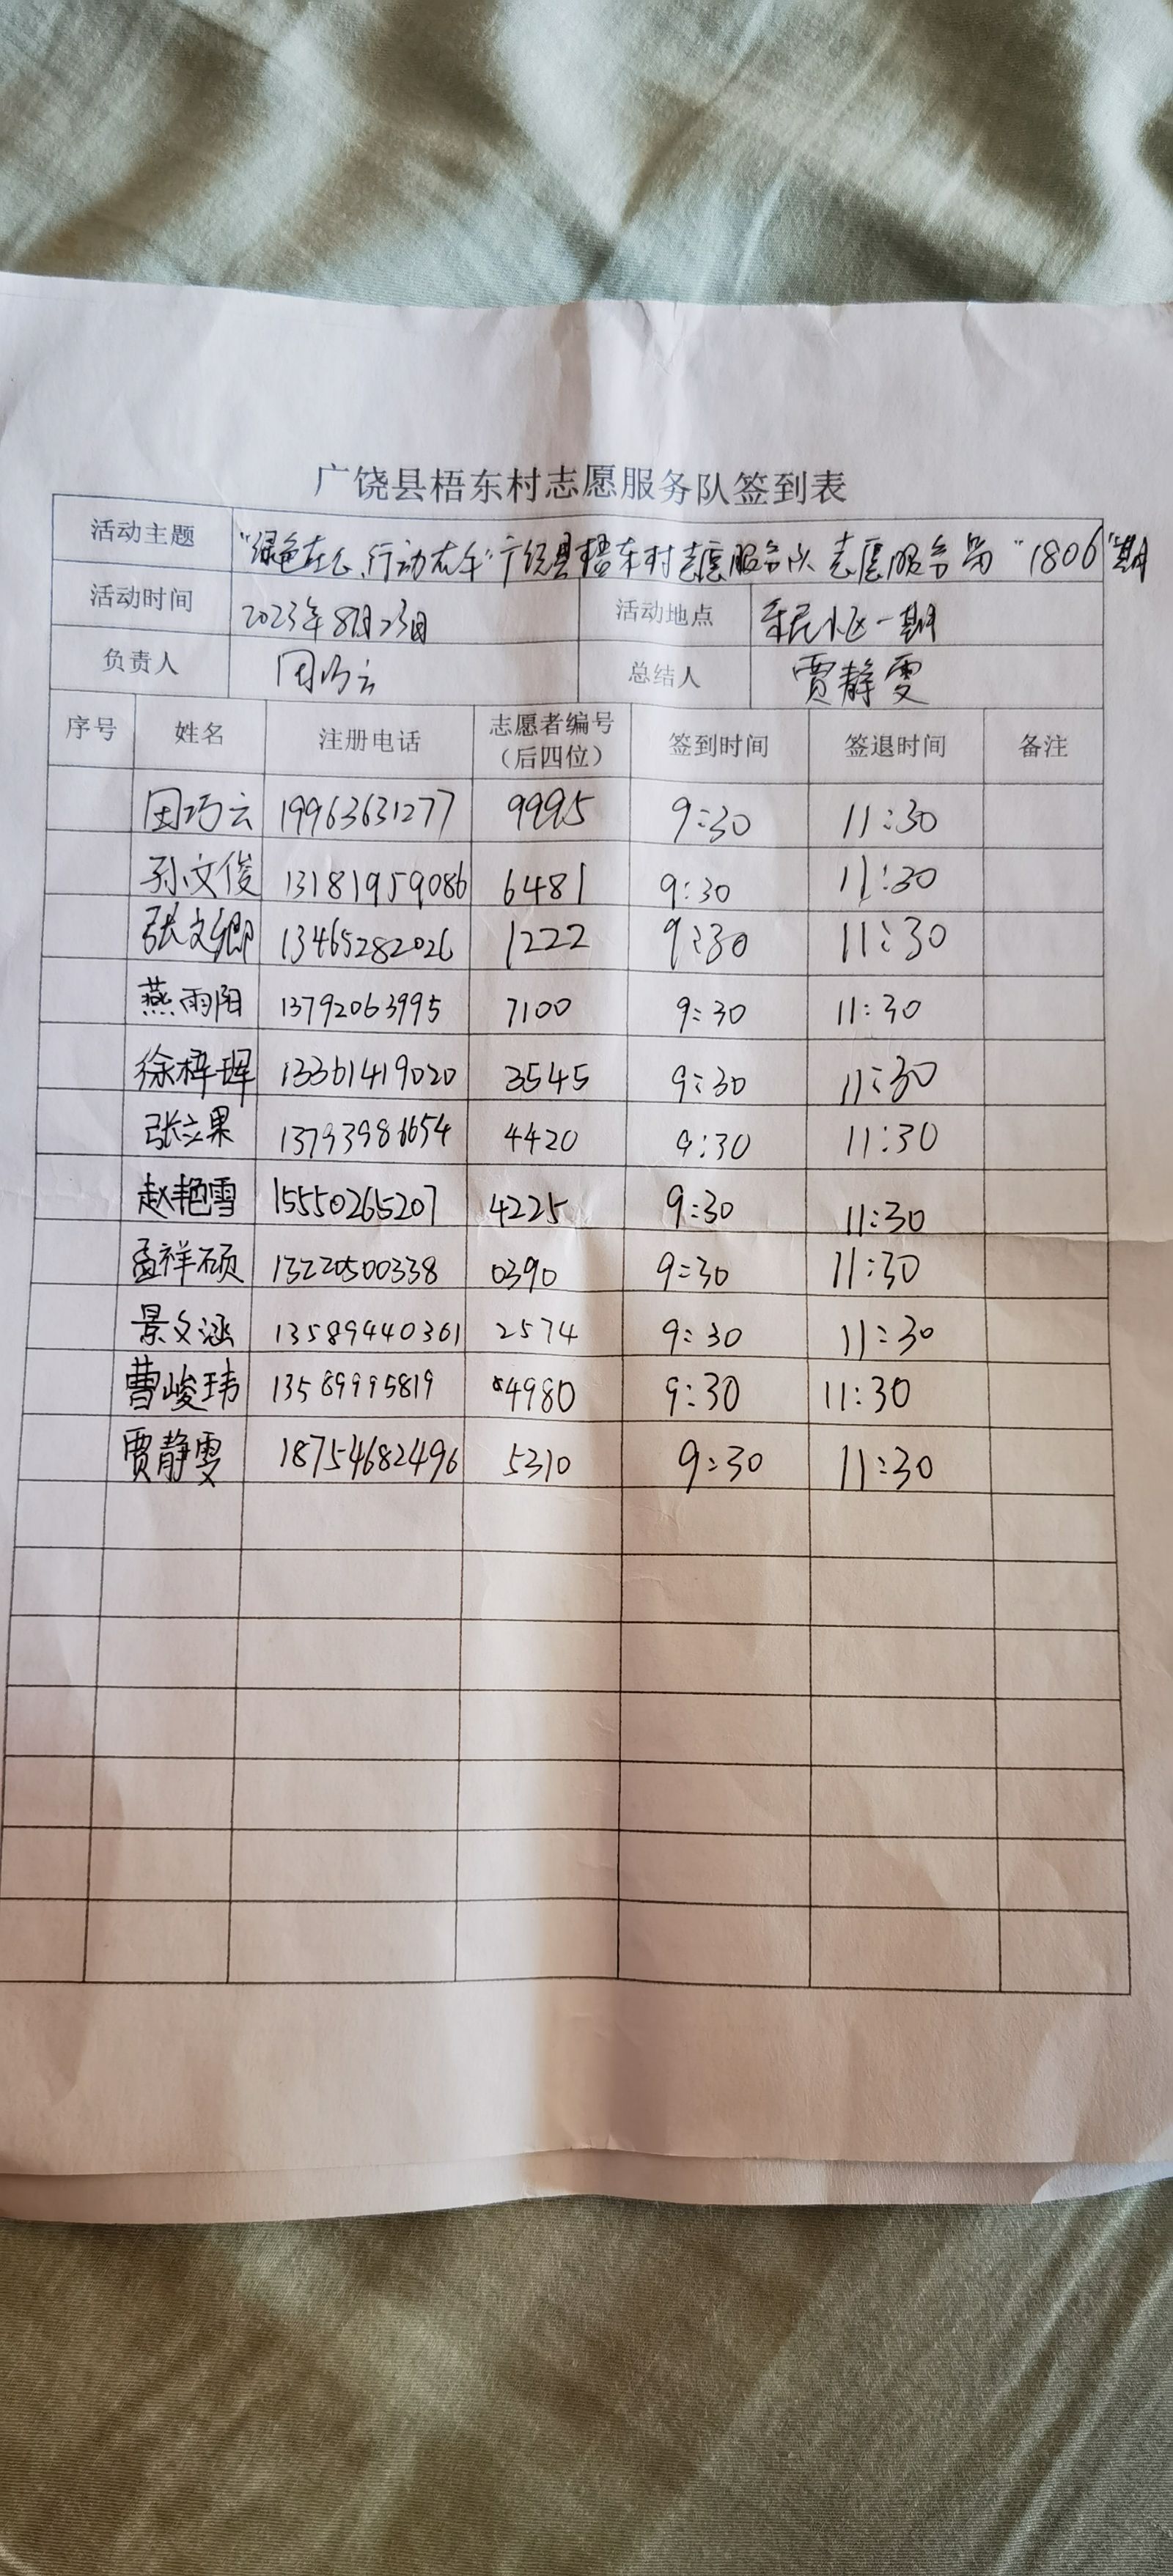 广饶县梧东村志愿服务队签到表
活动主题 "绿色在心、行动在手"广饶县梧东村志愿服务队 志愿服务第"1806"期
活动时间 2023年8月23日 活动地点 乐民小区一期
负责人 田巧云 总结人 贾静雯
序号 姓名 注册电话 志愿者编号 签到时间 签退时间 备注
(后四位)
田巧云 19963631277 9995 9:30 11:30
孙文俊 13181959086 6481 9:30 11:30
张文卿 13465282026 1222 9:30 11:30
燕雨阳 13792063995 7100 9:30 11:30
徐梓珲 13361419020 3545 9:30 11:30
张立果 13793986654 4420 9:30 11:30
赵艳雪 15550265207 4225 9:30 11:30
孟祥硕 13220500338 0390 9:30 11:30
景文涵 13589440361 2574 9:30 11:30
曹峻玮 13589995819 4980 9:30 11:30
贾静雯 18754682496 5310 9:30 11:30